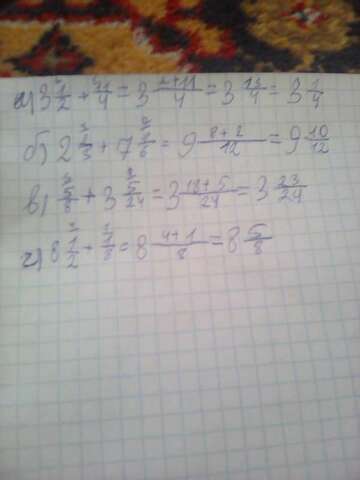 а) 3 1/2 + 11/4 = 3 2+11/4 = 3 13/4 = 3 1/4
б) 2 2/3 + 7 1/6 = 9 8+2/12 = 9 10/12
в) 5/8 + 3 5/24 = 3 18+5/24 = 3 23/24
г) 8 1/2 + 1/8 = 8 4+1/8 = 8 5/8